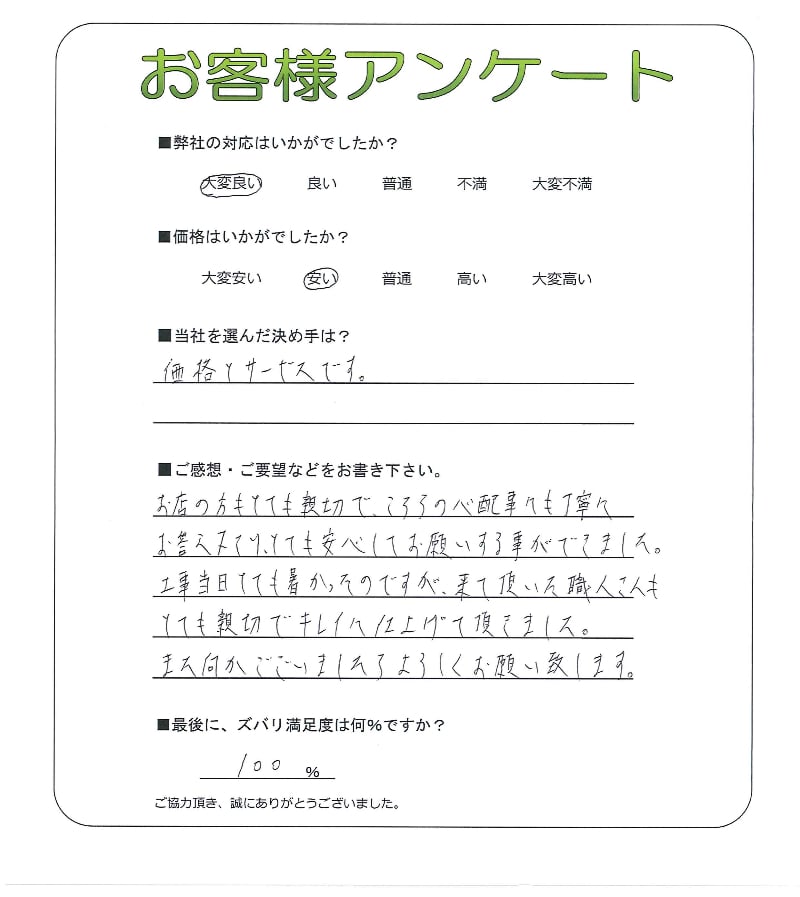 お客様アンケート
■弊社の対応はいかがでしたか？
大変良い 良い 普通 不満 大変不満
■価格はいかがでしたか？
大変安い 安い 普通 高い 大変高い
■当社を選んだ決め手は？
価格とサービスです。
■ご感想・ご要望などをお書き下さい。
お店の方もとても親切で、こちらの心配事にも丁寧に
お答え下さり、とても安心してお願いする事ができました。
工事当日とても暑かったのですが、来て頂いた職人さんも
とても親切でキレイに仕上げて頂きました。
また何かございましたらよろしくお願い致します。
■最後に、ズバリ満足度は何％ですか？
100 ％
ご協力頂き、誠にありがとうございました。